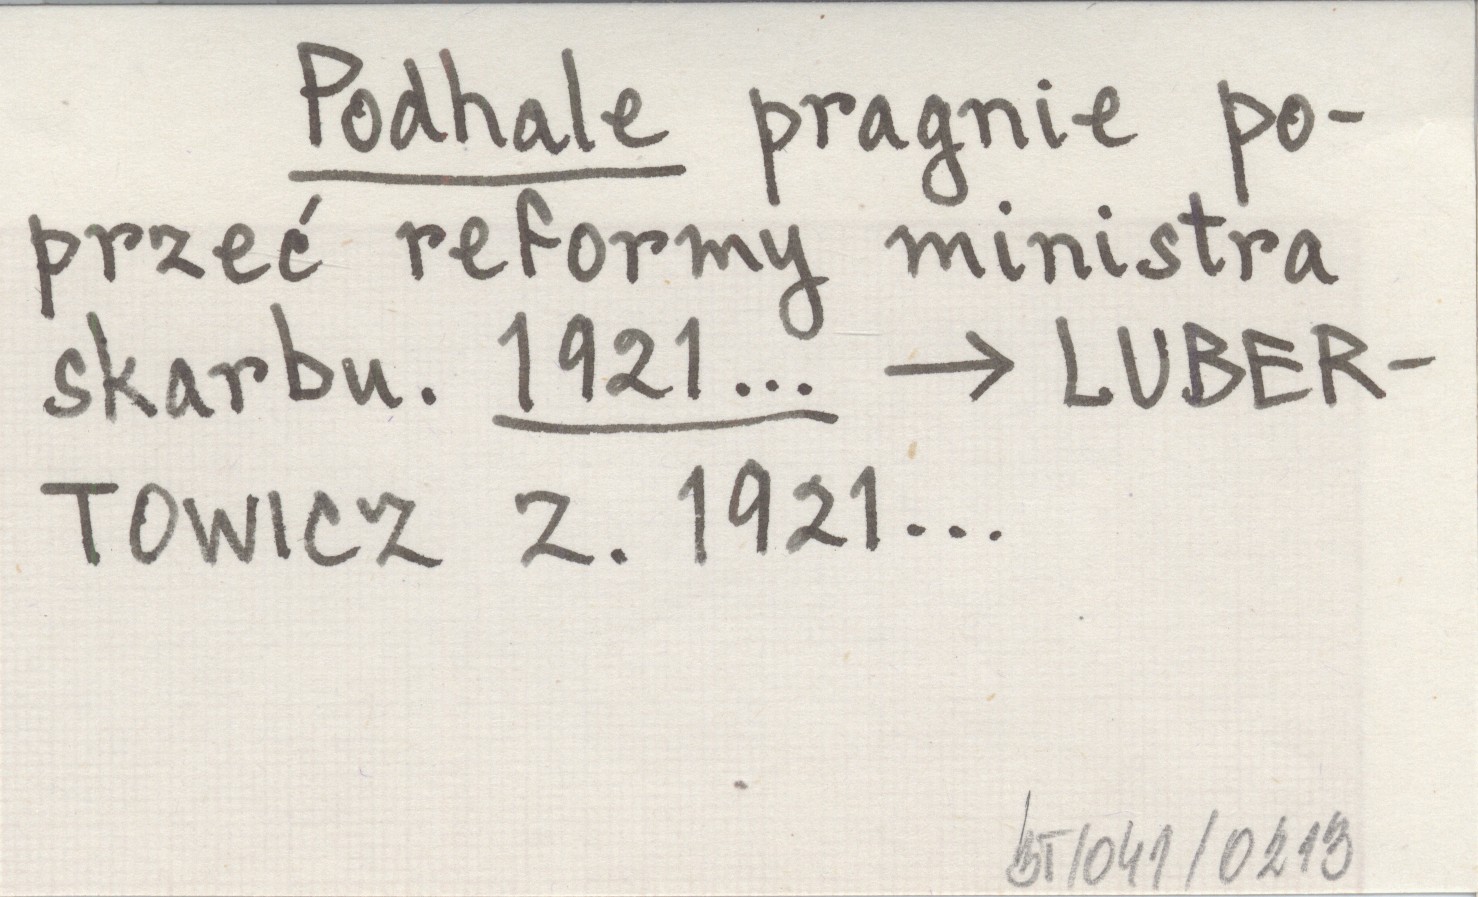 Podhale pragnie po-
przeć reformy ministra
skarbu. 1921... → LUBER-
TOWICZ Z. 1921...
BT/041/0213